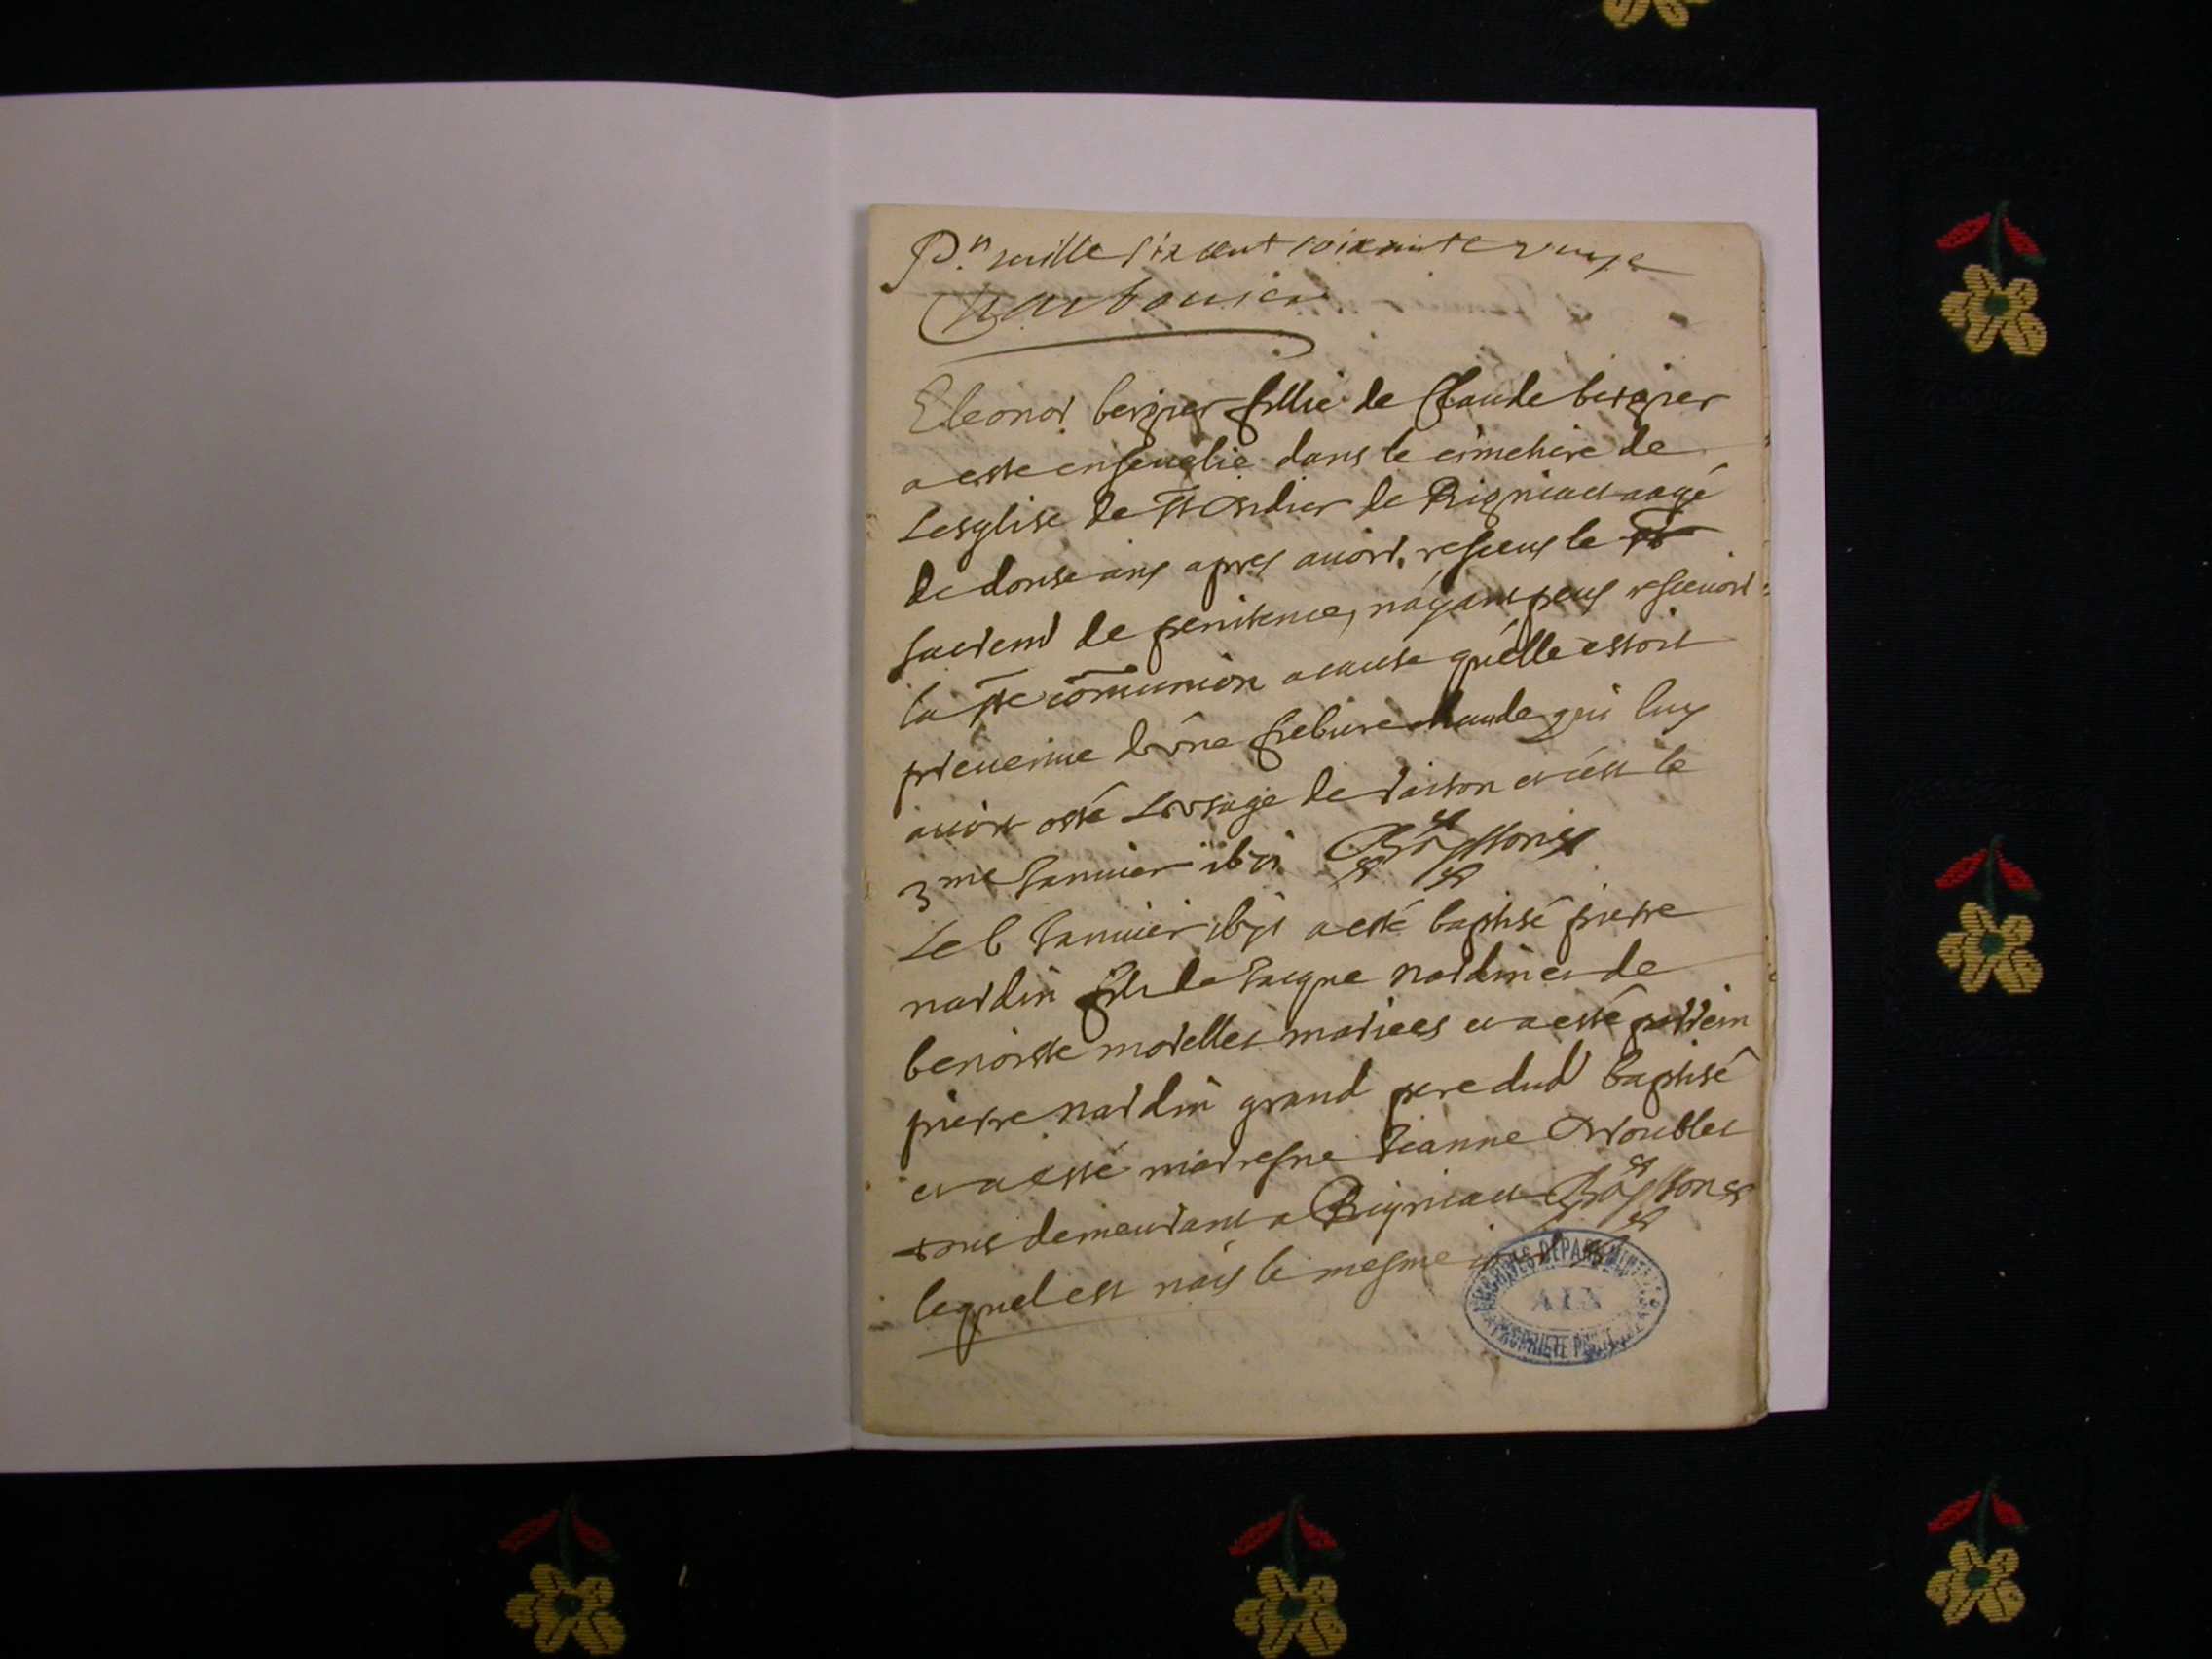 P.r mille six cent soixante unze
Charbonier
Eleonor bergier fillie de Claude bergier
a esté ensevelie dans le cimetiere de
Lesglise de St Ordier de Rignieu aagé
de douse ans apres avoir resceus le
sacrem de penitence, n'ayant peus rescevoir
la ste comunion a cause qu'elle estoit
prevenue d'vne fiebure chaude qui luy
avoit osté L'vsage de raison et c'est le
3me Janvier 1671
Le 6 Janvier 1671 a esté baptisé pierre
nardin fils de Jacque nardin et de
benoiste morellet mariees et a esté parrein
pierre nardin grand pere dud baptisé
et a esté marresne Jeanne
tous demeurant a Rignieu
lequel est nais le mesme jour
ARCHIVES DÉPARTEMENTALES
AIN
PROPRIÉTÉ PUBLIQUE